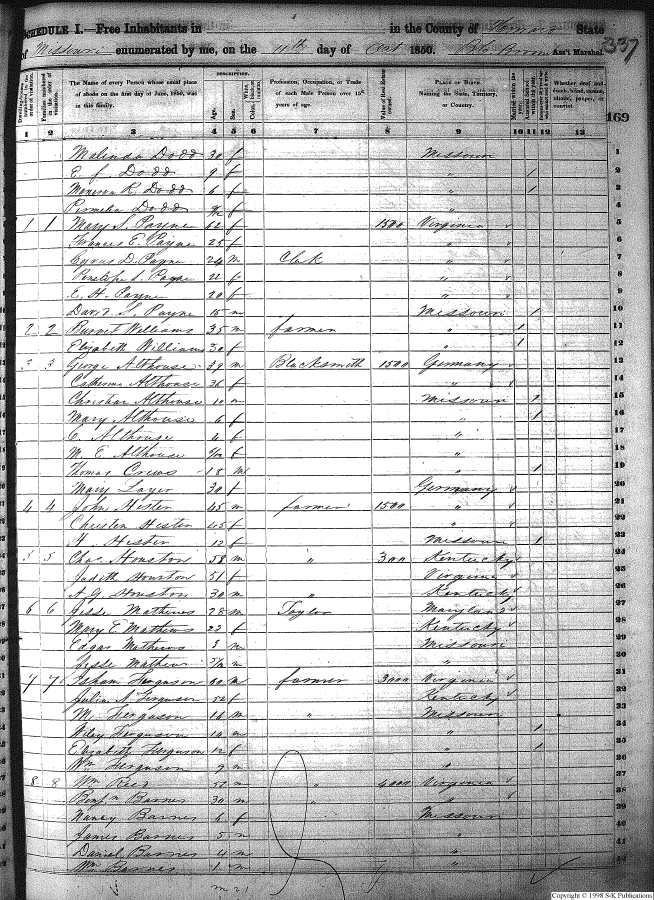 SCHEDULE I.—Free Inhabitants in in the County of State
of Missouri enumerated by me, on the 11th day of Oct 1850. Ass't Marshal. 337
169
DESCRIPTION.
The Name of every Person whose usual place of abode on the first day of June, 1850, was in this family.
Age. Sex.
Profession, Occupation, or Trade of each Male Person over 15 years of age.
Value of Real Estate owned.
PLACE OF BIRTH. Naming the State, Territory, or Country.
Whether deaf and dumb, blind, insane, idiotic, pauper, or convict.
1 2 3 4 5 6 7 8 9 10 11 12 13
Malinda Dodd 30 f Missouri 1
E. J. Dodd 9 f " 1 2
R. Dodd 6 f " 1 3
Permelia Dodd f " 4
1 1 Mary S. Payne 62 f 1500 Virginia 5
Frances E. Payne 25 f " 6
Cyrus D. Payne 24 m Clerk " 7
Penelope S. Payne 22 f " 8
E. H. Payne 20 f " 9
David S. Payne 15 m Missouri 1 10
2 2 Burnet Williams 35 m farmer " 1 11
Elizabeth Williams 30 f " 1 12
3 3 George Althouse 39 m Blacksmith 1500 Germany 13
Catherine Althouse 36 f " 14
Christian Althouse 10 m Missouri 1 15
Mary Althouse 6 f " 1 16
C. Althouse 4 f " 17
M. E. Althouse f " 18
Thomas Crews 18 m " 1 19
Mary Layer 30 f Germany 20
4 4 John Hister 45 m farmer 1500 " 21
Hister 45 f " 22
H. Hister 12 f Missouri 1 23
5 5 Chas. Houston 58 m " 300 Kentucky 24
Judith Houston 51 f Virginia 25
A. G. Houston 30 m " Kentucky 26
6 6 Jesse Mathews 28 m Taylor Maryland 27
Mary E. Mathews 23 f Kentucky 28
Edgar Mathews 3 m Missouri 29
Jesse Mathews m " 30
7 7 Isham Ferguson 60 m farmer 3000 Virginia 31
Julia A. Ferguson 52 f Kentucky 32
M. Ferguson 16 m " Missouri 33
Wiley Ferguson 14 m " 1 34
Elizabeth Ferguson 12 f " 1 35
Wm Ferguson 9 m " 36
8 8 Wm Reed m " 4000 Virginia 37
Benj'n Barnes 30 m " " 38
Nancy Barnes 6 f Missouri 39
James Barnes 5 m " 40
Daniel Barnes 4 m " 41
Wm Barnes 1 m " 42
m 21
Copyright © 1998 S-K Publications